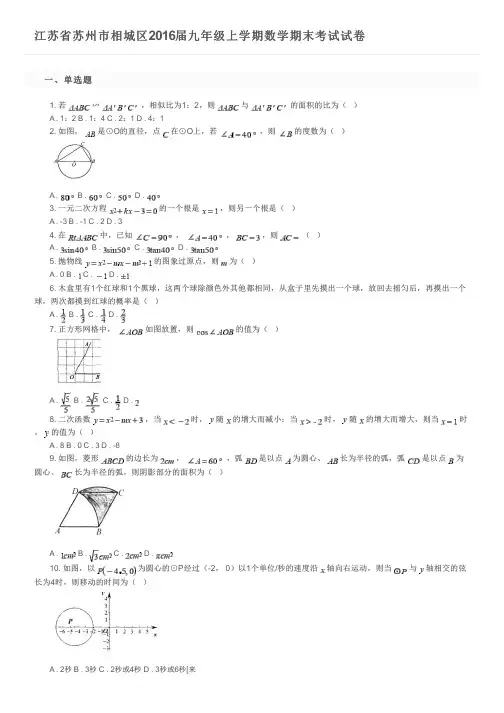 江苏省苏州市相城区2016届九年级上学期数学期末考试试卷
一、单选题
1. 若 ΔABC ∽ ΔA'B'C' ，相似比为1：2，则 ΔABC 与 ΔA'B'C' 的面积的比为（ ）
A . 1：2 B . 1：4 C . 2：1 D . 4：1
2. 如图， AB 是⊙O的直径，点 C 在⊙O上，若 ∠A=40° ，则 ∠B 的度数为（ ）
C
A O B
A . 80° B . 60° C . 50° D . 40°
3. 一元二次方程 x²+kx-3=0 的一个根是 x=1 ，则另一个根是（ ）
A . -3 B . -1 C . 2 D . 3
4. 在 RtΔABC 中，已知 ∠C=90° ， ∠A=40° ， BC=3 ，则 AC= （ ）
A . 3sin40° B . 3sin50° C . 3tan40° D . 3tan50°
5. 抛物线 y=x²-mx-m²+1 的图象过原点，则 m 为（ ）
A . 0 B . 1 C . -1 D . ±1
6. 木盒里有1个红球和1个黑球，这两个球除颜色外其他都相同，从盒子里先摸出一个球，放回去摇匀后，再摸出一个
球，两次都摸到红球的概率是（ ）
A . 1/2 B . 1/3 C . 1/4 D . 2/3
7. 正方形网格中， ∠AOB 如图放置，则 cos∠AOB 的值为（ ）
A
O B
A . √5/5 B . 2√5/5 C . 1/2 D . 2
8. 二次函数 y=x²-mx+3 ，当 x<-2 时， y 随 x 的增大而减小；当 x>-2 时， y 随 x 的增大而增大，则当 x=1 时
， y 的值为（ ）
A . 8 B . 0 C . 3 D . -8
9. 如图，菱形 ABCD 的边长为 2cm ， ∠A=60° ，弧 BD 是以点 A 为圆心、 AB 长为半径的弧，弧 CD 是以点 B 为
圆心、 BC 长为半径的弧，则阴影部分的面积为（ ）
D C
A B
A . 1cm² B . √3cm² C . 2cm² D . πcm²
10. 如图，以 P(-4.5,0) 为圆心的⊙P经过（-2， 0）以1个单位/秒的速度沿 x 轴向右运动，则当 ⊙P 与 y 轴相交的弦
长为4时，则移动的时间为（ ）
y
4
3
2
1
P
-6 -5 -4 -3 -2 -1 1 2 3 4 5 x
-1
-2
A . 2秒 B . 3秒 C . 2秒或4秒 D . 3秒或6秒[来